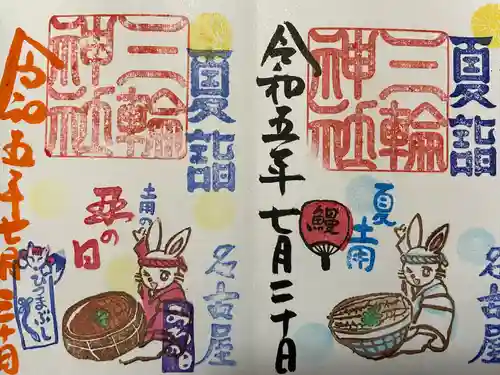 夏詣
三輪
神社
令和五年七月二十日
土用の
丑の日
名古屋
ひつまぶし
夏詣
三輪
神社
令和五年七月二十日
夏土用
鰻
名古屋